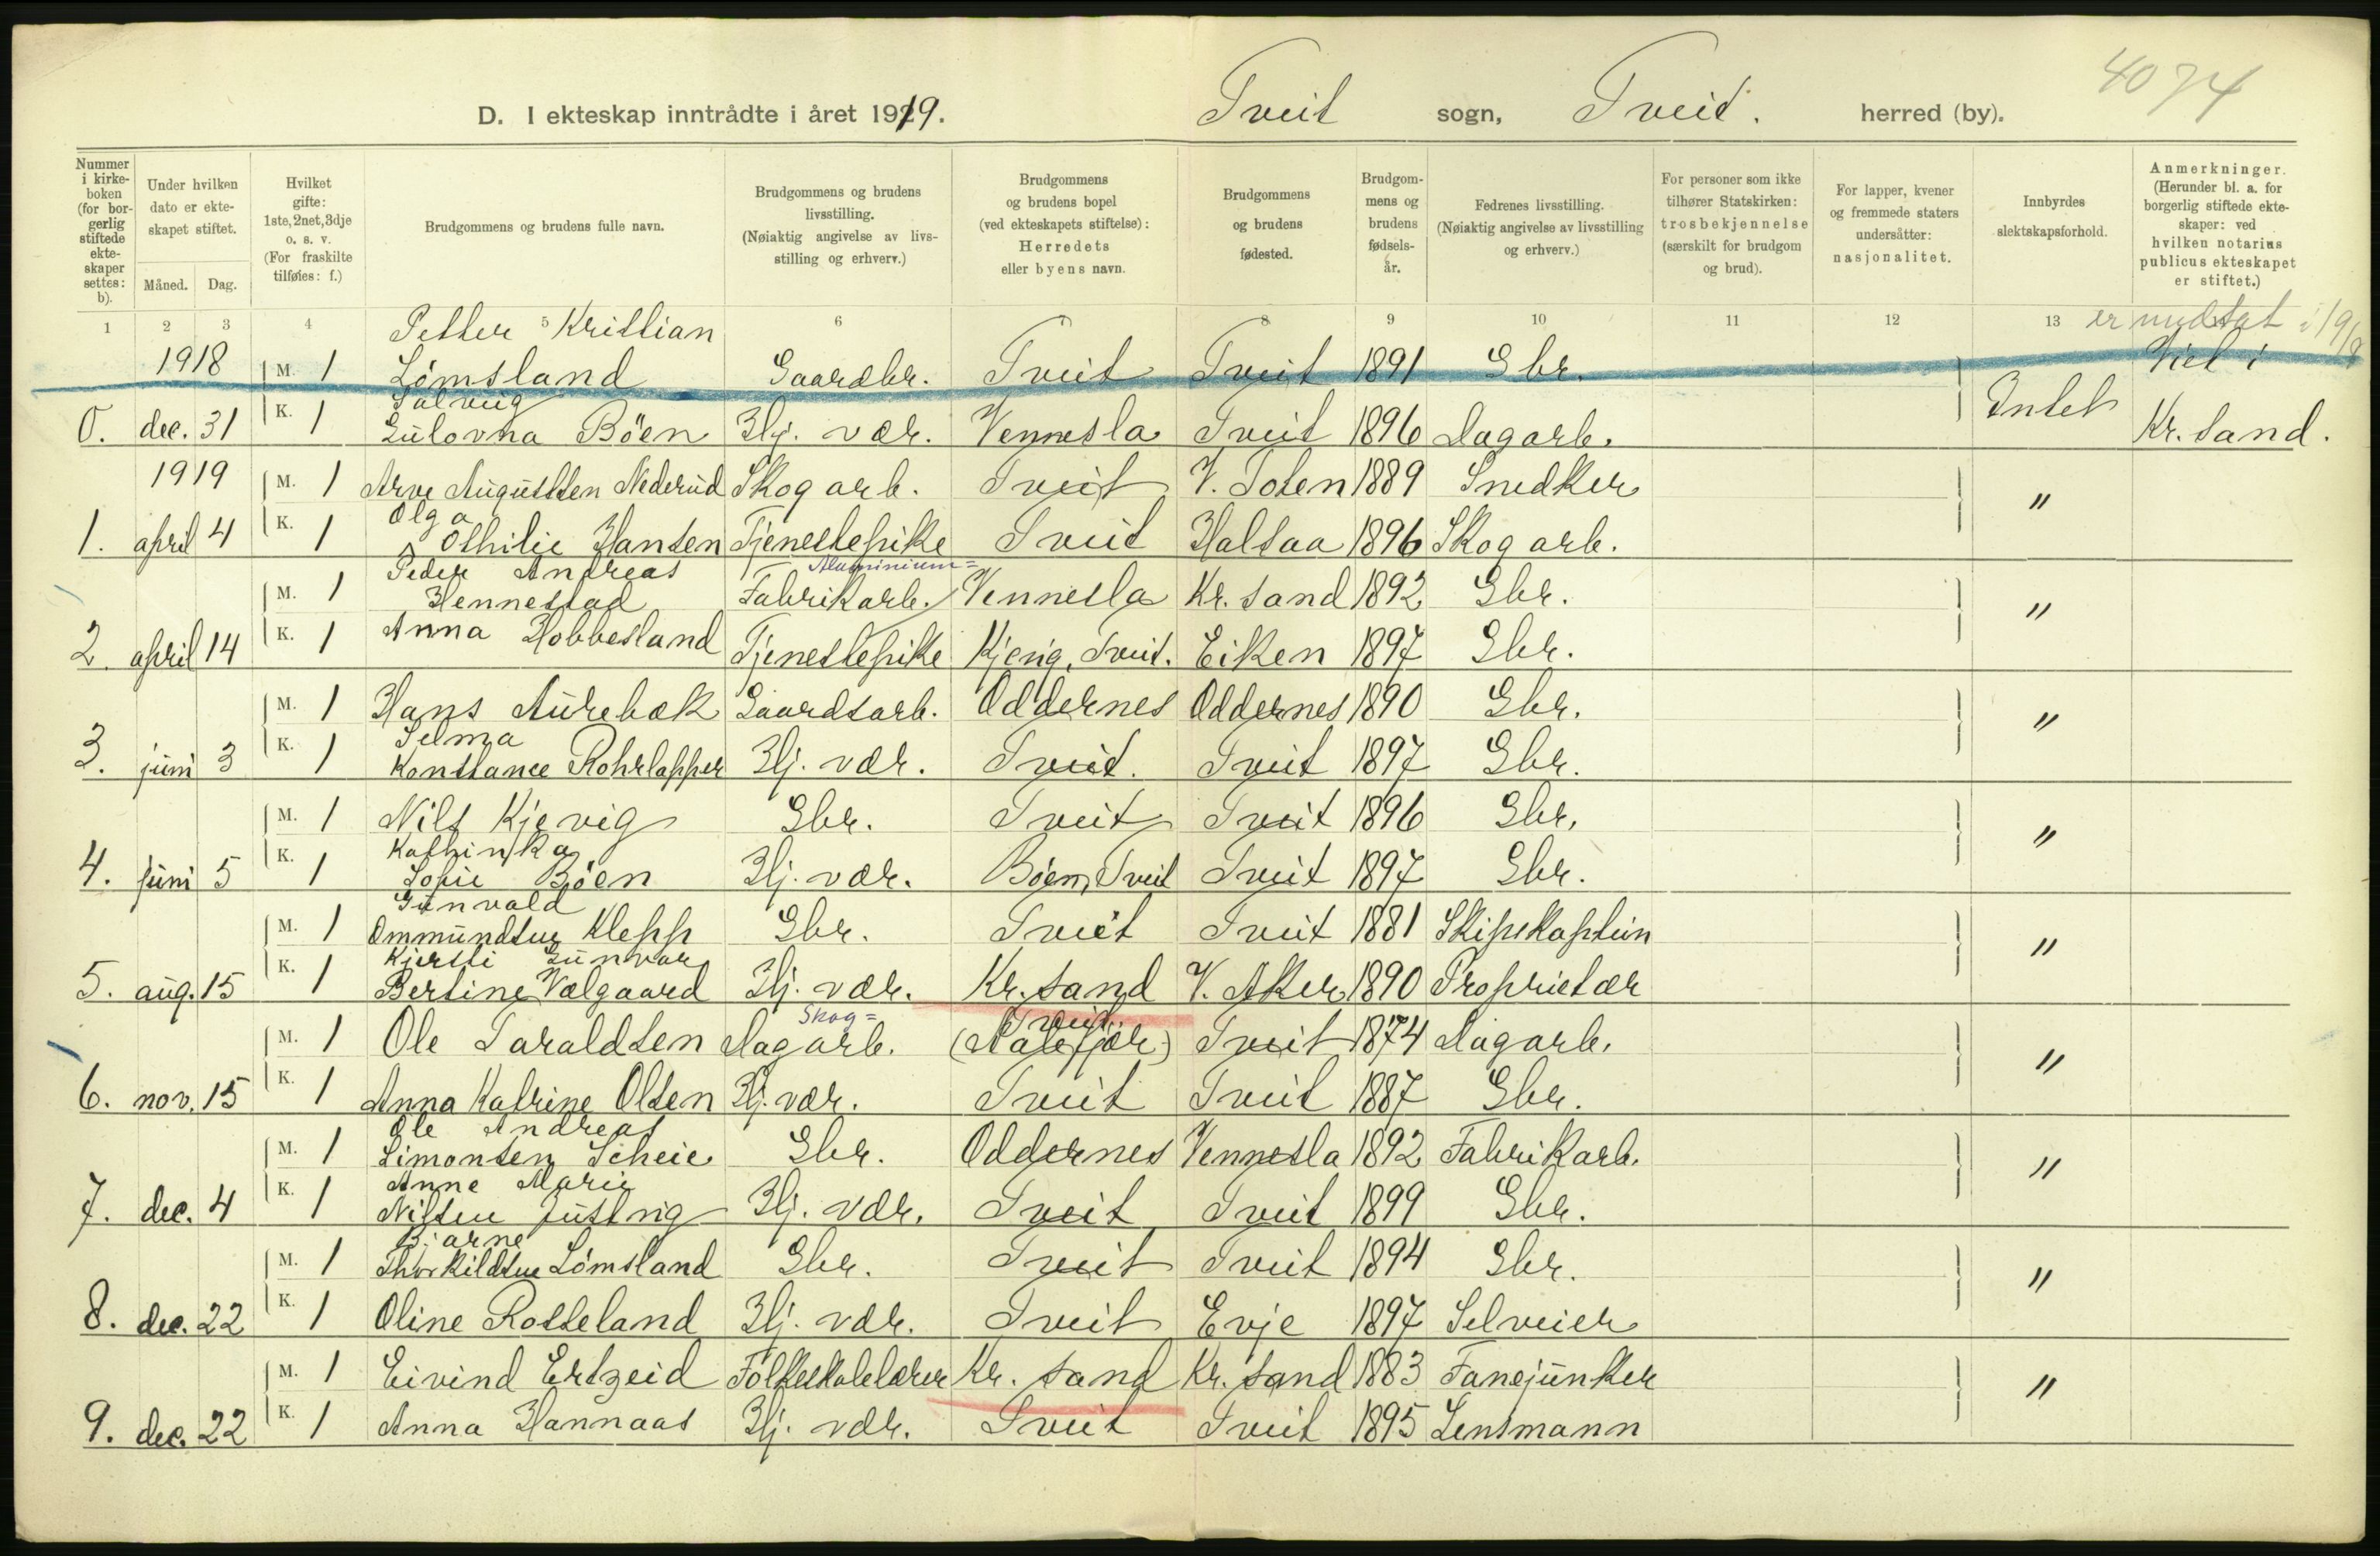 4074
D. I ekteskap inntrådte i året 1919. Tveit sogn, Tveit. herred (by).
Nummer i kirkeboken (for borgerlig stiftede ekteskaper settes: b).
Under hvilken dato er ekteskapet stiftet.
Måned. Dag.
Hvilket gifte: 1ste, 2net, 3dje o. s. v. (For fraskilte tilføies: f.)
Brudgommens og brudens fulle navn.
Brudgommens og brudens livsstilling. (Nøiaktig angivelse av livsstilling og erhverv.)
Brudgommens og brudens bopel (ved ekteskapets stiftelse): Herredets eller byens navn.
Brudgommens og brudens fødested.
Brudgommens og brudens fødselsår.
Fedrenes livsstilling. (Nøiaktig angivelse av livsstilling og erhverv.)
For personer som ikke tilhører Statskirken: trosbekjennelse (særskilt for brudgom og brud).
For lapper, kvener og fremmede staters undersåtter: nasjonalitet.
Innbyrdes slektskapsforhold.
Anmerkninger. (Herunder bl. a. for borgerlig stiftede ekteskaper: ved hvilken notarius publicus ekteskapet er stiftet.)
1 2 3 4 5 6 8 9 10 11 12 13
er medtat i 19/8
1918 M. 1 Petter Kristian Lømsland Gaardbr. Tveit Tveit 1891 Gbr. Viet i
0. dec. 31 K. 1 Solveig Gulovna Böen Hj. vær. Vennesla Tveit 1896 Dagarb. Intet Kr.sand.
1919 M. 1 Arve Augustsen Nederud Skogarb. Tveit V. Toten 1889 Snedker "
1. april 4 K. 1 Olga Othilie Hansen Tjenestepike Tveit Halsaa 1896 Skogarb.
M. 1 Peder Andreas Hennestad Aluminium= Fabrikarb. Vennesla Kr.sand 1892 Gbr. "
2. april 14 K. 1 Anna Hobbesland Tjenestepike Kjevig, Tveit. Eiken 1897 Gbr.
M. 1 Hans Aurebæk Gaardsarb. Oddernes Oddernes 1890 Gbr. "
3. juni 3 K. 1 Selma Konstance Rohrlapper Hj. vær. Tveit. Tveit 1897 Gbr.
M. 1 Nils Kjevig Gbr. Tveit Tveit 1896 Gbr. "
4. juni 5 K. 1 Kathinka Sofie Böen Hj. vær. Böen, Tveit Tveit 1897 Gbr.
M. 1 Gunvald Ommundsen Klepp Gbr. Tveit Tveit 1881 Skipskaptein "
5. aug. 15 K. 1 Kjersti Gunvor Bertine Vølgaard Hj. vær. Kr.sand V. Aker 1890 Proprietær
M. 1 Ole Taraldsen Skog= Dagarb. Tveit. Tveit 1874 Dagarb. "
6. nov. 15 K. 1 Anna Katrine Olsen Hj. vær. Tveit Tveit 1887 Gbr.
M. 1 Ole Andreas Simonsen Scheie Gbr. Oddernes Vennesla 1892 Fabrikarb. "
7. dec. 4 K. 1 Anne Marie Nilsen Justvig Hj. vær. Tveit Tveit 1899 Gbr.
M. 1 Bjarne Thorkildsen Lömsland Gbr. Tveit Tveit 1894 Gbr. "
8. dec. 22 K. 1 Oline Rosseland Hj. vær. Tveit Evje 1897 Selveier
M. 1 Eivind Ertzeid Folkeskolelærer Kr.sand Kr.sand 1883 Fanejunker "
9. dec. 22 K. 1 Anna Hannaas Hj. vær. Tveit Tveit 1895 Lensmann